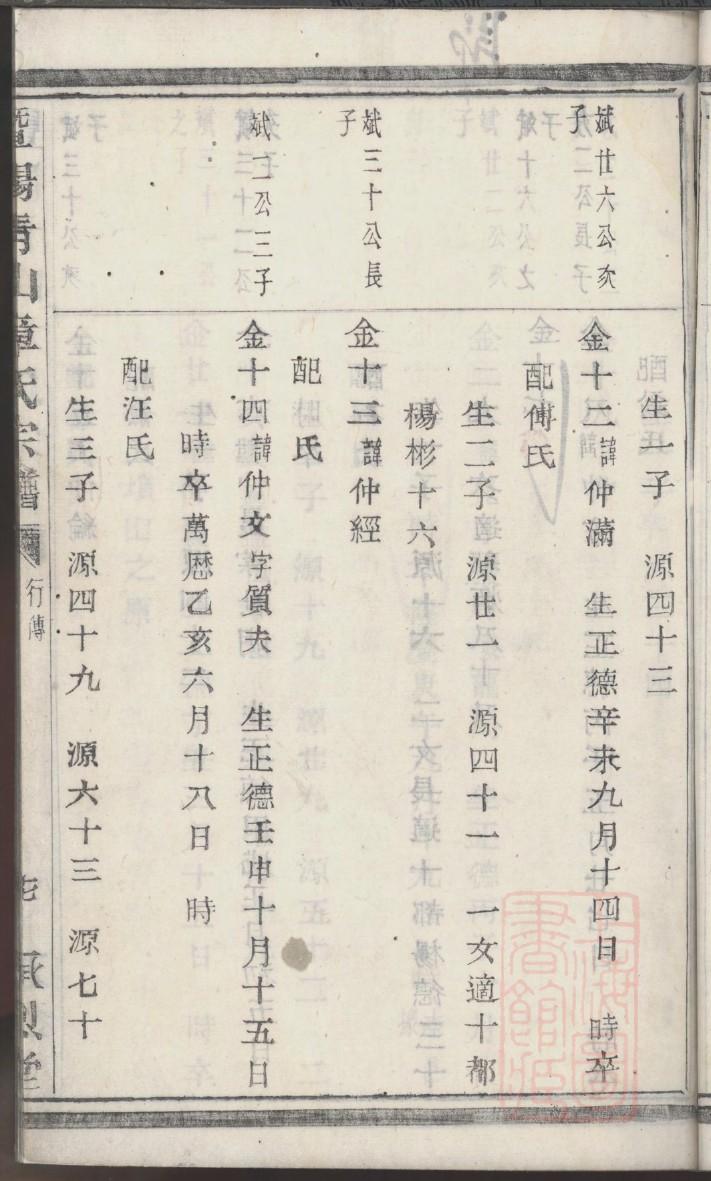 生一子 源四十三
斌廿六公次子
金十二諱仲滿 生正德辛未九月十四日 時卒
配傅氏
生二子 源廿一 源四十一 一女適十都
楊彬十六
斌三十公長子
金十三諱仲經
配 氏
斌一公三子
金十四諱仲文字質夫 生正德壬申十月十五日
時卒萬曆乙亥六月十八日 時
配汪氏
生三子 源四十九 源六十三 源七十
陽青山章氏宗譜
行傳
承烈堂